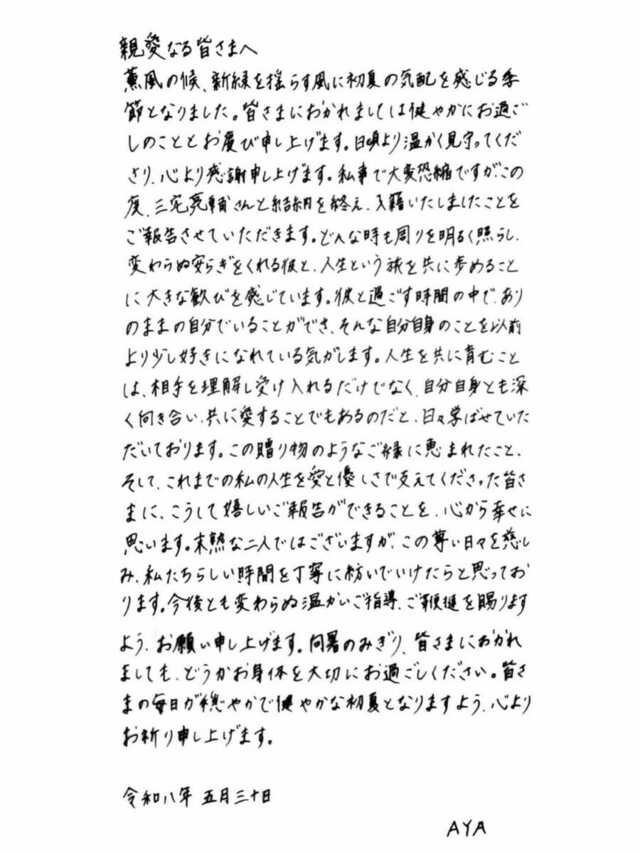 親愛なる皆さまへ
薫風の候、新緑を揺らす風に初夏の気配を感じる季
節となりました。皆さまにおかれましては健やかにお過ご
しのこととお慶び申し上げます。日頃より温かく見守ってくだ
さり、心より感謝申し上げます。私事で大変恐縮ですが、この
度、三宅亮輔さんと結納を終え、入籍いたしましたことを
ご報告させていただきます。どんな時も周りを明るく照らし、
変わらぬ安らぎをくれる彼と、人生という旅を共に歩めること
に大きな歓びを感じています。彼と過ごす時間の中で、あり
のままの自分でいることができ、そんな自分自身のことを以前
より少し好きになれている気がします。人生を共に育むこと
は、相手を理解し受け入れるだけでなく、自分自身とも深
く向き合い、共に愛することでもあるのだと、日々学ばせていた
だいております。この贈り物のようなご縁に恵まれたこと、
そして、これまでの私の人生を愛と優しさで支えてくださった皆さ
まに、こうして嬉しいご報告ができることを、心から幸せに
思います。未熟な二人ではございますが、この尊い日々を慈し
み、私たちらしい時間を丁寧に紡いでいけたらと思ってお
ります。今後とも変わらぬ温かいご指導、ご鞭撻を賜ります
よう、お願い申し上げます。向暑のみぎり、皆さまにおかれ
ましても、どうかお身体を大切にお過ごしください。皆さ
まの毎日が穏やかで健やかな初夏となりますよう、心より
お祈り申し上げます。
令和八年 五月三十日
AYA